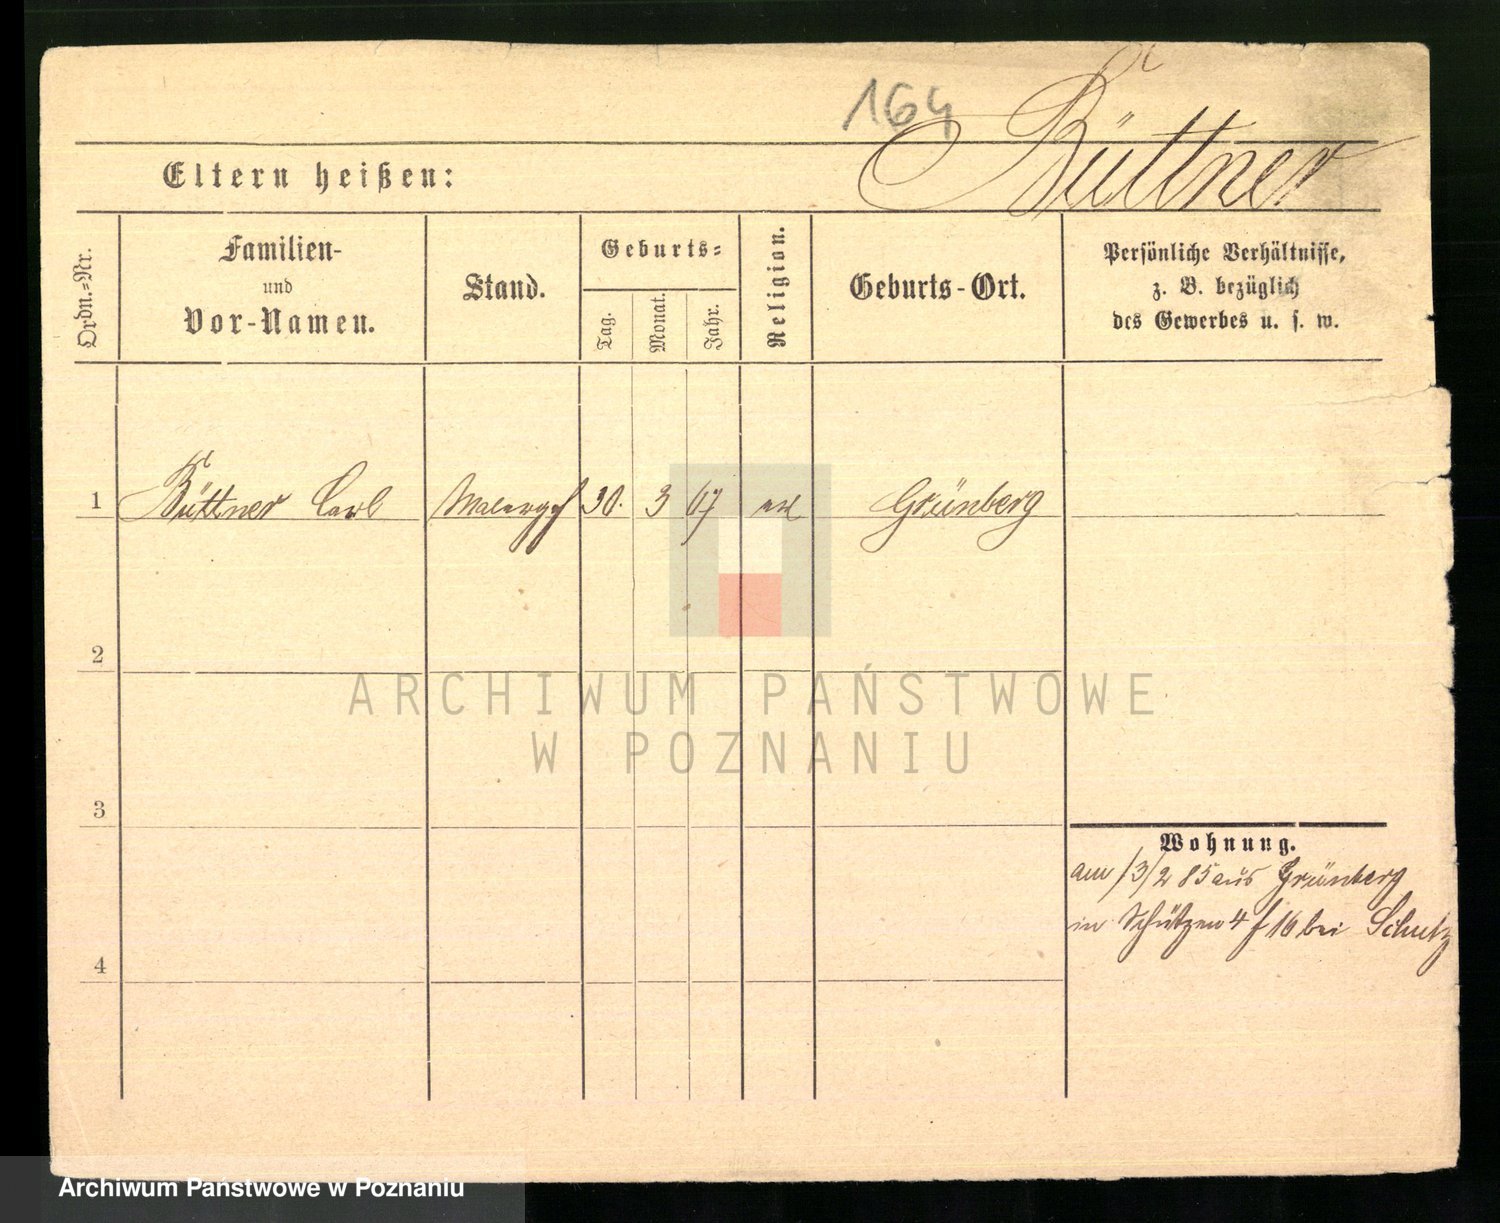 164
Büttner
Eltern heißen:
Ordn.-Nr.
Familien-
und
Vor-Namen.
Stand.
Geburts-
Tag.
Monat.
Jahr.
Religion.
Geburts-Ort.
Persönliche Verhältnisse,
z. B. bezüglich
des Gewerbes u. s. w.
1 Büttner Carl Malergh 30. 3 67 evl Grünberg
2
3
4
Wohnung.
am 13/2 85 aus Grünberg
in Schützen 4 f 16 bei Schulz
ARCHIWUM PAŃSTWOWE
W POZNANIU
Archiwum Państwowe w Poznaniu